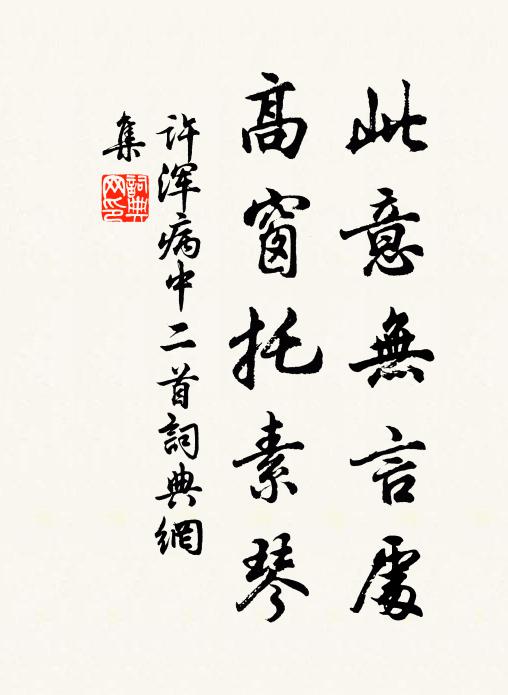 此意無言處
高窗托素琴
许浑病中二首詞典網
集
詞典
网印